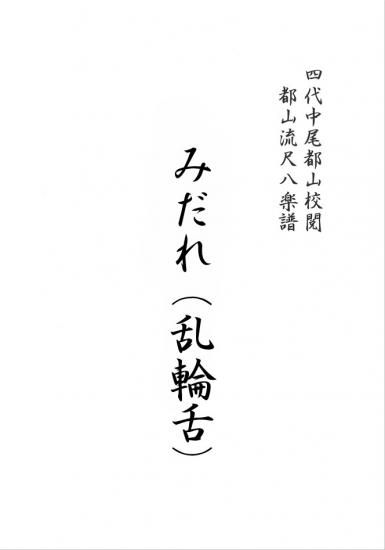 四代中尾都山校閲
都山流尺八楽譜
みだれ(乱輪舌)